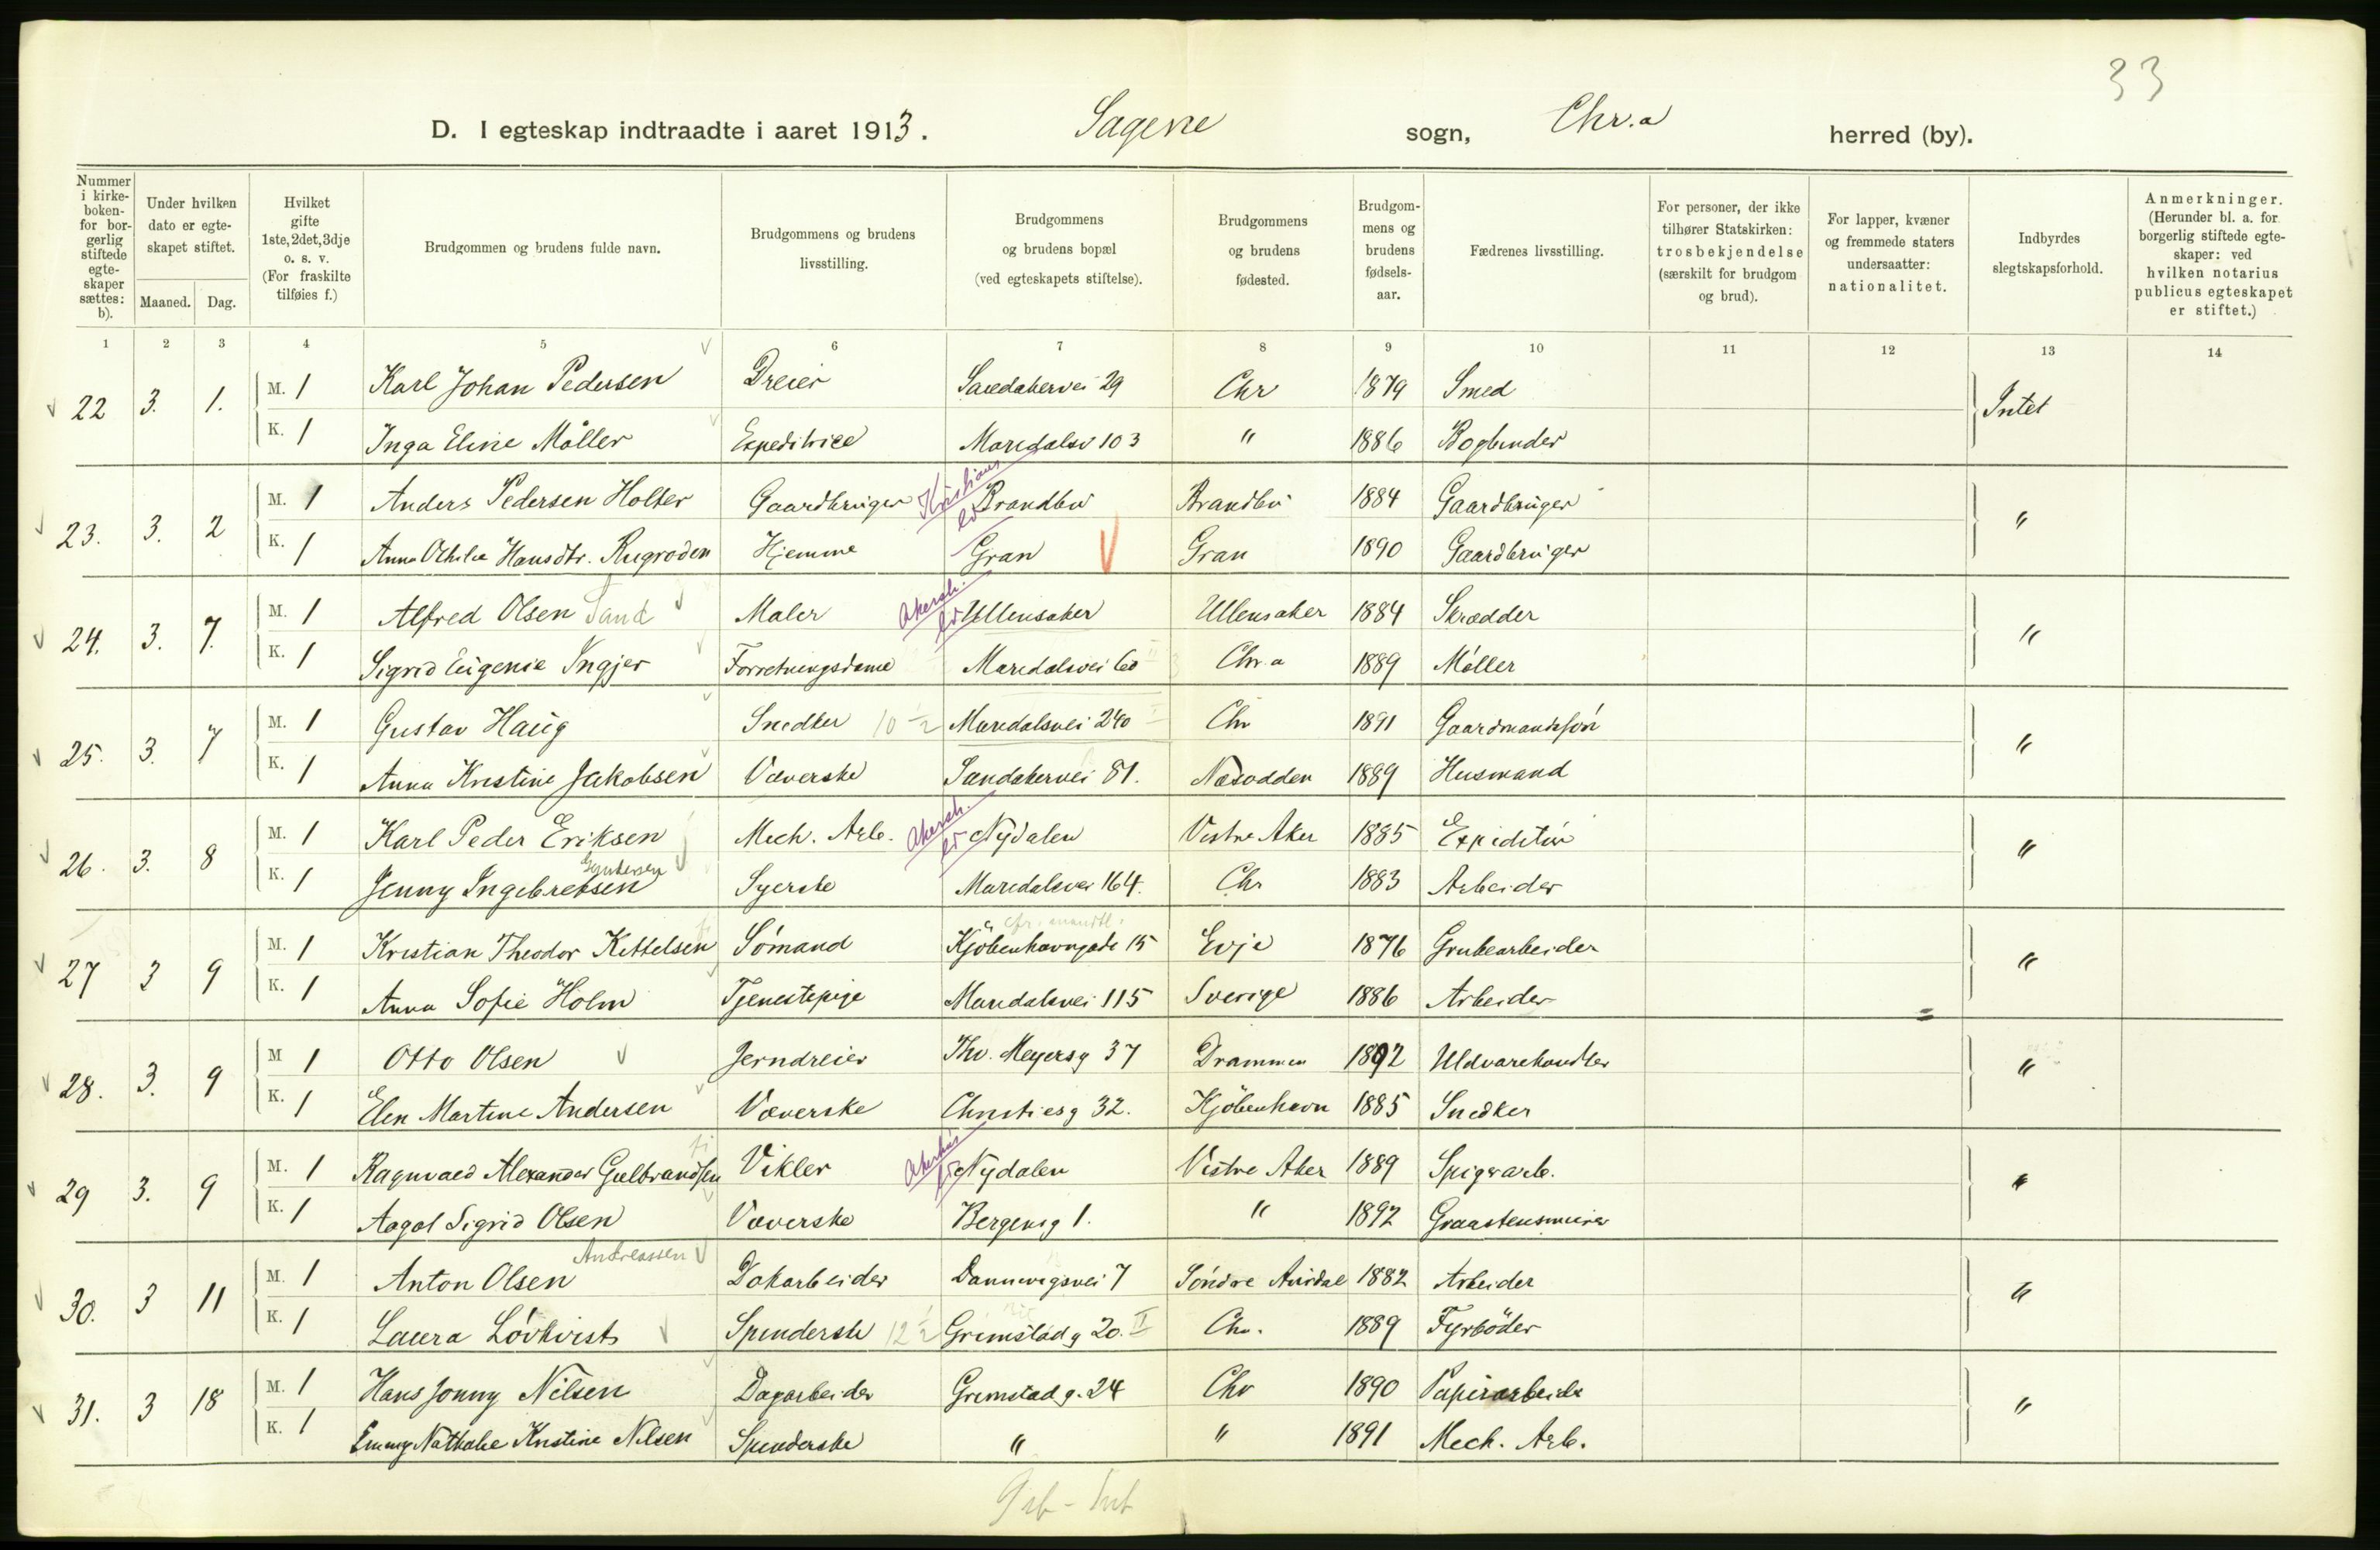 33
D. I egteskap indtraadte i aaret 1913. Sagene sogn, Chr.a herred (by).
Nummer i kirke- boken- for bor- gerlig stiftede egte- skaper sættes: b).
Under hvilken dato er egte- skapet stiftet.
Maaned. Dag.
Hvilket gifte 1ste, 2det, 3dje o. s. v. (For fraskilte tilføies f.)
Brudgommen og brudens fulde navn.
Brudgommens og brudens livsstilling.
Brudgommens og brudens bopæl (ved egteskapets stiftelse).
Brudgommens og brudens fødested.
Brudgom- mens og brudens fødsels- aar.
Fædrenes livsstilling.
For personer, der ikke tilhører Statskirken: trosbekjendelse (særskilt for brudgom og brud).
For lapper, kvæner og fremmede staters undersaatter: nationalitet.
Indbyrdes slegtskapsforhold.
Anmerkninger. (Herunder bl. a. for borgerlig stiftede egte- skaper: ved hvilken notarius publicus egteskapet er stiftet.)
1 2 3 4 5 6 7 8 9 10 11 12 13 14
22 3. 1. M. 1 Karl Johan Pedersen Dreier 29 Chr 1879 Smed Intet
K. 1 Inga Eline Möller Expeditrice Maridalsv 103 " 1886 Bogbinder
23. 3. 2 M. 1 Anders Pedersen Holter Gaardbruger Kristians Brandbu Brandbu 1884 Gaardbruger "
K. 1 Anna Othilie Hansdtr. Rugroden Hjemme Gran Gran 1890 Gaardbruger
24. 3. 7. M. 1 Alfred Olsen Sand Maler Akersh. Ullensaker Ullensaker 1884 Skrædder "
K. 1 Sigrid Eugenie Ingjer Forretningsdame Maridalsvei 60 Chr.a 1889 Möller
25. 3. 7 M. 1 Gustav Haug Snedker 10 1/2 Maridalsvei 240 Chr 1891 Gaardmandssön "
K. 1 Anna Kristine Jakobsen Væverske Sandakervei 81. Næsodden 1889 Husmand
26. 3. 8 M. 1 Karl Peder Eriksen Mech. Arb. Akersh. Nydalen Vestre Aker 1885 Expeditör "
K. 1 Jenny Ingebretsen Syerske Maridalsvei 164. Chr 1883 Arbeider
27 3 9 M. 1 Kristian Theodor Kittelsen Sömand Kjöbenhavngade 15 Evje 1876 Grubearbeider "
K. 1 Anna Sofie Holm Tjenestepige Maridalsvei 115 Sverige 1886 Arbeider
28. 3. 9 M 1 Otto Olsen Jerndreier Thv. Meyersg 37 Drammen 1892 Uldvarehandler "
K. 1 Elen Martine Andersen Væverske Christiesg 32. Kjöbenhavn 1885 Snedker
29 3. 9 M. 1 Ragnvald Alexander Gulbrandsen Vikler Akershus Nydalen Vestre Aker 1889 Spigerarb. "
K. 1 Aagot Sigrid Olsen Væverske Bergensg 1. " 1892 Graastensmurer
30. 3 11 M. 1 Anton Olsen Andreassen Dokarbeider Dannevigsvei 7 Söndre Aurdal 1882 Arbeider "
K. 1 Laura Lövkvist Spinderske 12 1/2 Grimstadg 20. II Chr. 1889 Fyrböder
31. 3 18 M. 1 Hans Jonny Nilsen Dagarbeider Grimstadg. 24 Chr 1890 Papirarbeider "
K. 1 Emmy Nathalie Kristine Nilsen Spinderske " " 1891 Mech. Arb.